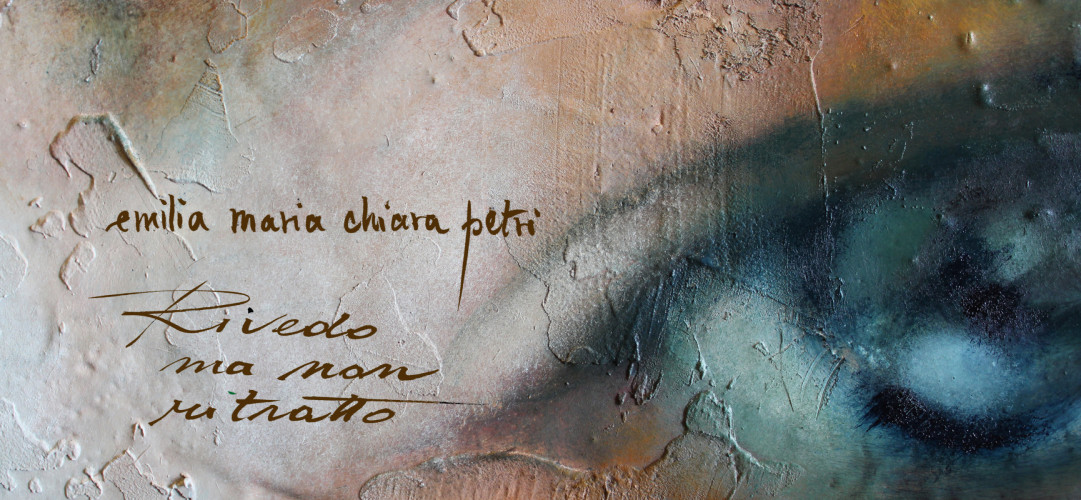 emilia maria chiara petri
Rivedo
ma non
ritratto